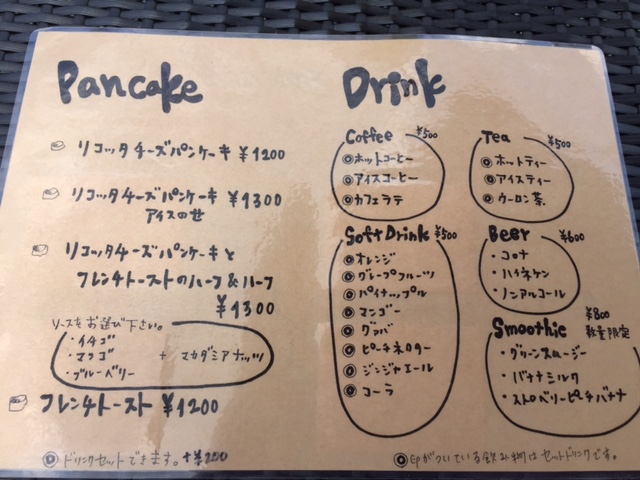 Pancake
リコッタチーズパンケーキ ¥1200
リコッタチーズパンケーキ ¥1300
アイスのせ
リコッタチーズパンケーキと
フレンチトーストのハーフ&ハーフ
¥1300
ソースをお選び下さい。
・イチゴ
・マンゴ + マカダミアナッツ
・ブルーベリー
フレンチトースト ¥1200
◎ドリンクセットできます。+¥200
Drink
Coffee ¥500
◎ホットコーヒー
◎アイスコーヒー
◎カフェラテ
Tea ¥500
◎ホットティー
◎アイスティー
◎ウーロン茶
Soft Drink ¥500
◎オレンジ
◎グレープフルーツ
◎パイナップル
◎マンゴー
◎グァバ
◎ピーチネクター
◎ジンジャエール
◎コーラ
Beer ¥600
・コロナ
・ハイネケン
・ノンアルコール
Smoothie ¥800
数量限定
・グリーンスムージー
・バナナミルク
・ストロベリーピーチバナナ
◎印がついている飲み物はセットドリンクです。